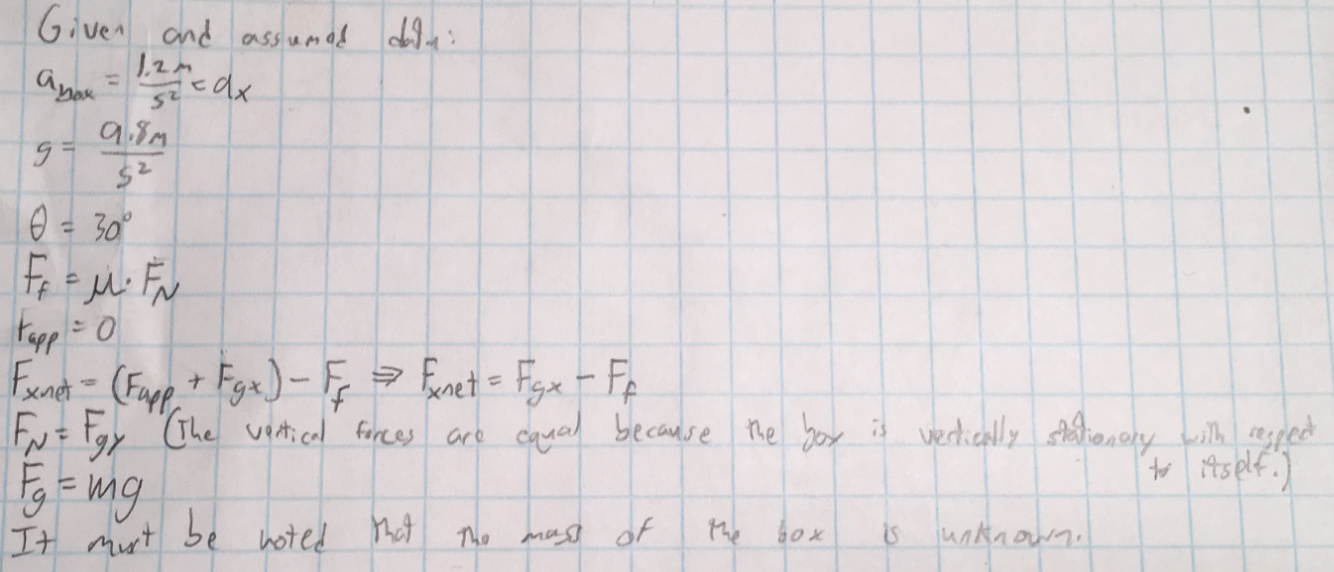 Given and assumed data:
a_box = 1.2m/s² = a_x
g = 9.8m/s²
θ = 30°
F_f = μ · F_N
F_app = 0
F_xnet = (F_app + F_gx) - F_f ⇒ F_xnet = F_gx - F_f
F_N = F_gy (The vertical forces are equal because the box is vertically stationary with respect
to itself.)
F_g = mg
It must be noted that the mass of the box is unknown.